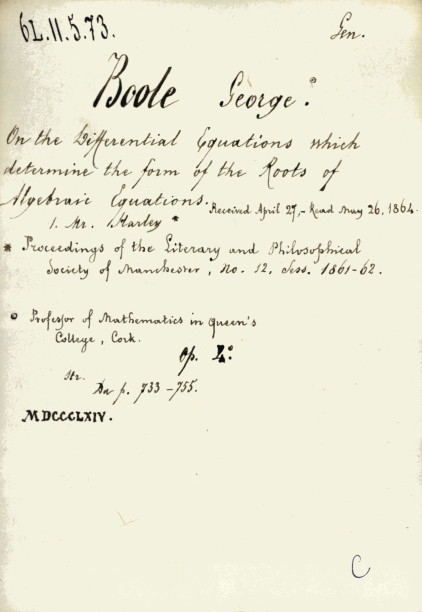 6L.II.5.73.
Gen.
Boole George.°
On the Differential Equations which
determine the form of the Roots of
Algebraic Equations. Received April 27,- Read May 26, 1864.
1. Mr. Harley *
* Proceedings of the Literary and Philosophical
Society of Manchester, No. 12, Sess. 1861-62.
° Professor of Mathematics in Queen's
College, Cork.
Op.
Str.
Da p. 733-755.
MDCCCLXIV.
C